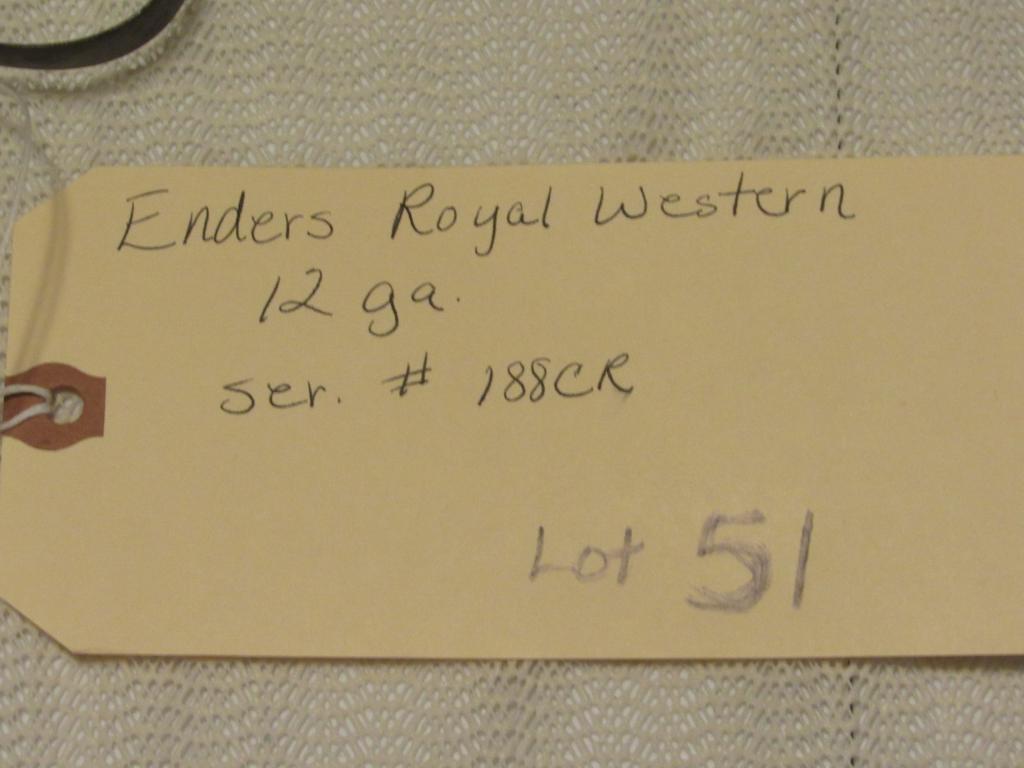 Enders Royal Western
12 ga.
ser. # 188CR
Lot 51